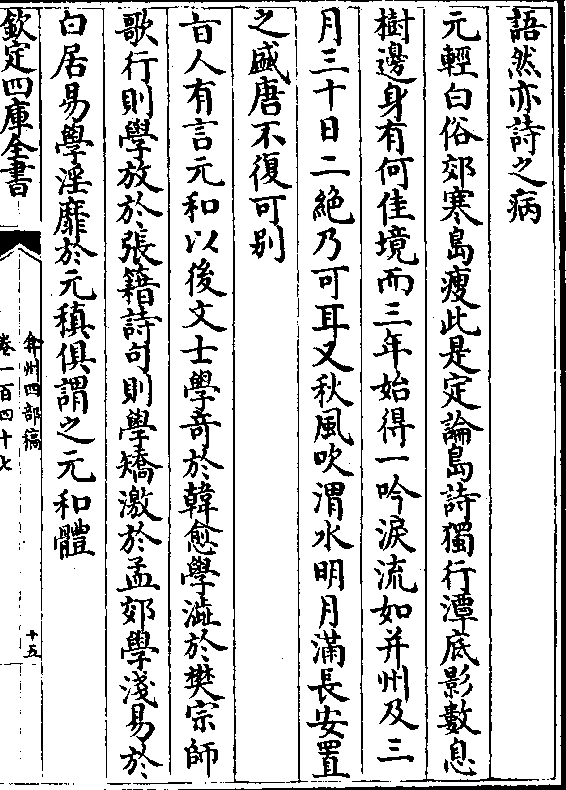 語然亦詩之病
元輕白俗郊寒島瘦此是定論島詩獨行潭底影數息
樹邊身有何佳境而三年始得一吟淚流如并州及三
月三十日二絶乃可耳又秋風吹渭水明月滿長安置
之盛唐不復可别
昔人有言元和以後文士學奇於韓愈學澁於樊宗師
歌行則學放於張籍詩句則學矯激於孟郊學淺易於
白居易學淫靡於元稹俱謂之元和體
欽定四庫全書
弇州四部稿
卷一百四十七
十五